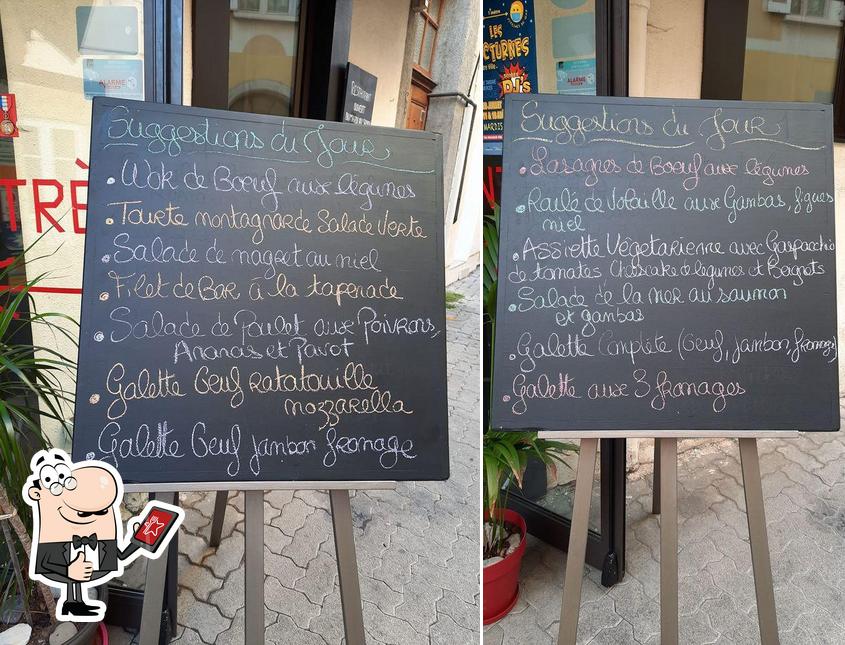 Suggestions du Jour
• Wok de Boeuf aux légumes
• Tourte montagnarde Salade Verte
• Salade de magret au miel
• Filet de Bar à la tapenade
• Salade de Poulet aux Poivrons,
Ananas et Pavot
• Galette Oeuf ratatouille
mozzarella
• Galette Oeuf jambon fromage
TRÈ
RESTAURANT
OUVERT
ALARME
Suggestions du Jour
• Lasagnes de Boeuf aux légumes
• Roulé de Volaille aux Gambas, figues
miel
• Assiette Végétarienne avec Gaspacchio
de tomates Cheescake de légumes et Beignets
• Salade de la mer au saumon
et gambas
• Galette Complète (Oeuf, jambon, fromage)
• Galette aux 3 fromages
LES
CTURNES
DJs
MARDIS
ALARME